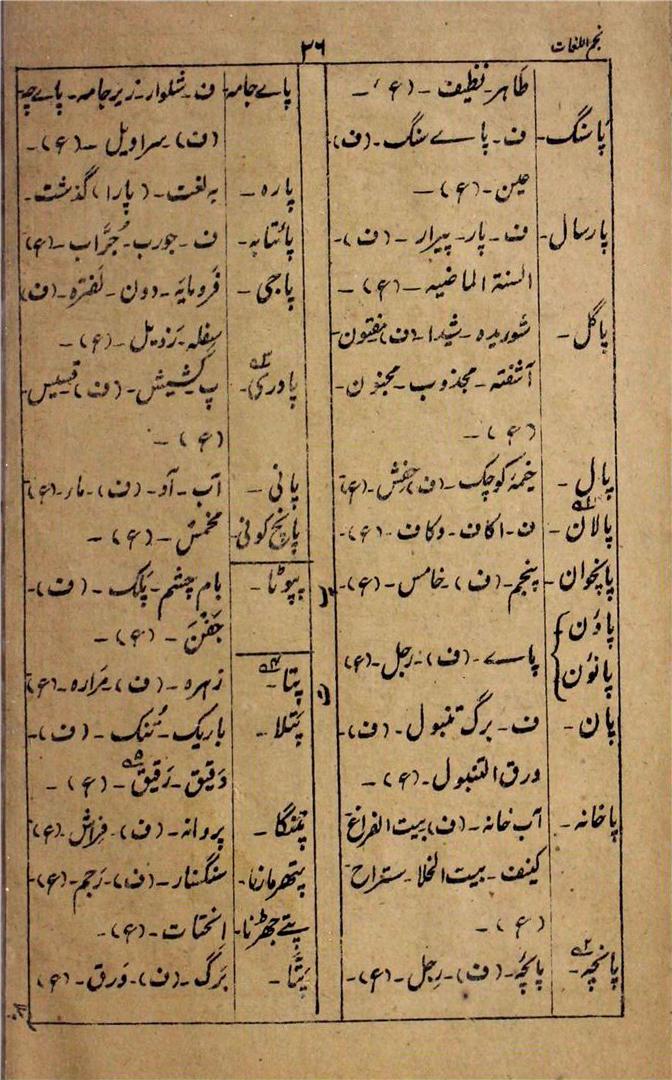 نجم اللغات
۳۶
طاہر۔ نظیف۔ (ع)۔
پاسنگ۔ ف۔ پاے سنگ۔ (ف)
عین۔ (ع)۔
پارسال۔ ف۔ پار۔ پیرار۔ (ف)۔
السنۃ الماضیہ۔ (ع)۔
پاگل۔ شوریدہ۔ شیدا۔ (ف) مفتون۔
آشفتہ۔ مجذوب۔ مجنون۔
(ع)۔
پال۔ خیمۂ کوچک۔ (ف) حفش۔ (ع)
پالان۔ ف۔ اکاف۔ وکاف۔ (ع)۔
پانچوان۔ پنجم۔ (ف) خامس۔ (ع)۔
پاوٗن
پانوٗن
پاے۔ (ف)۔ رجل۔ (ع)
پان۔ ف۔ برگ تنبول۔ (ف)۔
ورق التنبول۔ (ع)۔
پاخانہ۔ آب خانہ۔ (ف) بیت الفراغ
کنیف۔ بیت الخلا۔ ستراح
(ع)۔
پانچہ۔ پاچہ۔ (ف)۔ رجل۔ (ع)۔
پاے جامہ۔ ف۔ شلوار۔ زیر جامہ۔ پاے چہ
(ف) سراویل۔ (ع)۔
پارہ۔ بہ لغت۔ (پارا) گذشت۔
پائتابہ۔ ف۔ جورب۔ جُرَّاب۔ (ع)
پاجی۔ فرومایہ۔ دون۔ لفترہ۔ (ف)
سفلہ۔ رذیل۔ (ع)۔
پادری۔ پ۔ کشیش۔ (ف) قسیس۔
(ع)۔
پانی۔ آب۔ آو۔ (ف)۔ ماء۔ (ع)
پانچ کونی۔ مخمس۔ (ع)۔
پپوٹا۔ بام چشم۔ پلک۔ (ف)۔
جفن۔ (ع)۔
پتا۔ زہرہ۔ (ف)۔ مرارہ۔ (ع)
پتلا۔ باریک۔ تُنک۔ (ف)۔
دقیق۔ رقیق۔ (ع)۔
پتنگا۔ پروانہ۔ (ف)۔ فراش۔ (ع)
پتھر مارنا۔ سنگسار۔ (ف)۔ رجم۔ (ع)۔
پتے جھڑنا۔ انحتات۔ (ع)۔
پتّا۔ برگ۔ (ف)۔ ورق۔ (ع)